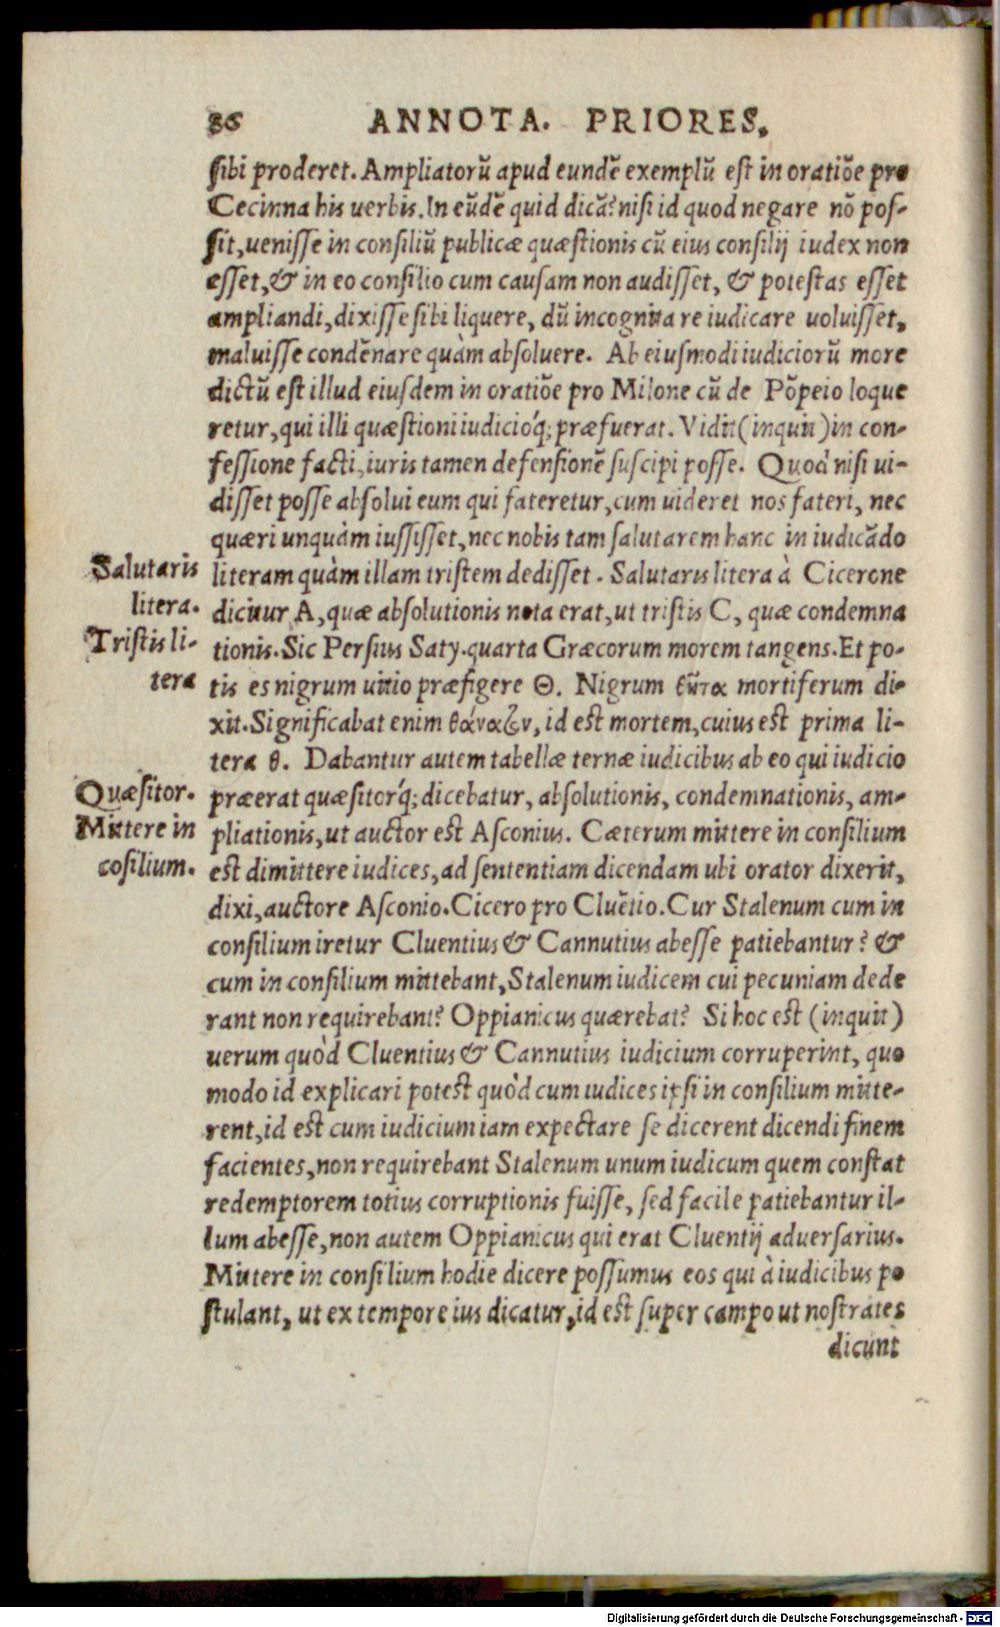 86 ANNOTA. PRIORES.
sibi proderet. Ampliatorũ apud eundẽ exemplũ est in oratiõe pro
Cecinna his uerbis. In eũdẽ quid dicã? nisi id quod negare nõ pos-
sit, uenisse in consiliũ publicæ quæstionis cũ eius consilij iudex non
esset, & in eo consilio cum causam non audisset, & potestas esset
ampliandi, dixisse sibi liquere, dũ incognita re iudicare uoluisset,
maluisse condẽnare quàm absoluere. Ab eiusmodi iudiciorũ more
dictũ est illud eiusdem in oratiõe pro Milone cũ de Põpeio loque
retur, qui illi quæstioni iudicioq́; præfuerat. Vidit (inquit) in con-
fessione facti, iuris tamen defensionẽ suscipi posse. Quod nisi ui-
disset posse absolui eum qui fateretur, cum uideret nos fateri, nec
quæri unquàm iussisset, nec nobis tam salutarem hanc in iudicãdo
Salutaris literam quàm illam tristem dedisset. Salutaris litera à Cicerone
litera. dicitur A, quæ absolutionis nota erat, ut tristis C, quæ condemna
Tristis li- tionis. Sic Persius Saty. quarta Græcorum morem tangens. Et po-
tera tis es nigrum uitio præfigere Θ. Nigrum θῆτα mortiferum di-
xit. Significabat enim θάνατον, id est mortem, cuius est prima li-
tera θ. Dabantur autem tabellæ ternæ iudicibus ab eo qui iudicio
Quæsitor. præerat quæsitorq́; dicebatur, absolutionis, condemnationis, am-
Mittere in pliationis, ut auctor est Asconius. Cæterum mittere in consilium
cosilium. est dimittere iudices, ad sententiam dicendam ubi orator dixerit,
dixi, auctore Asconio. Cicero pro Cluẽtio. Cur Stalenum cum in
consilium iretur Cluentius & Cannutius abesse patiebantur? &
cum in consilium mittebant, Stalenum iudicem cui pecuniam dede
rant non requirebant? Oppianicus quærebat? Si hoc est (inquit)
uerum quòd Cluentius & Cannutius iudicium corruperint, quo
modo id explicari potest quòd cum iudices ipsi in consilium mitte-
rent, id est cum iudicium iam expectare se dicerent dicendi finem
facientes, non requirebant Stalenum unum iudicum quem constat
redemptorem totius corruptionis fuisse, sed facile patiebantur il-
lum abesse, non autem Oppianicus qui erat Cluentij aduersarius.
Mittere in consilium hodie dicere possumus eos qui à iudicibus po
stulant, ut ex tempore ius dicatur, id est super campo ut nostrates
dicunt
Digitalisierung gefördert durch die Deutsche Forschungsgemeinschaft - DFG